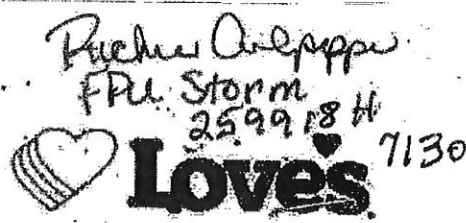 Culpepper
FPU Storm
259918 H
7130
Love's